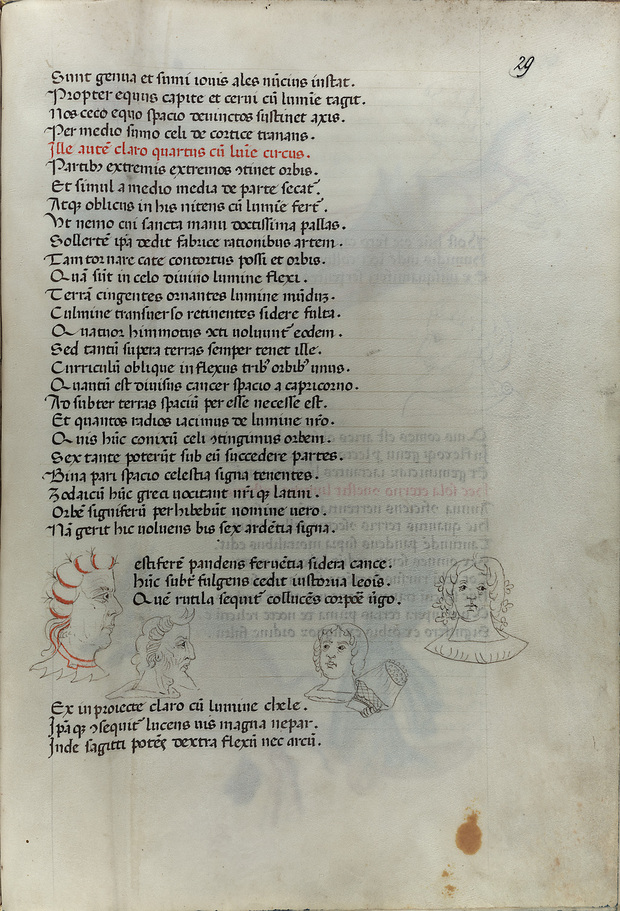 29
Sunt genua et sumi iouis ales nūcius instat.
Propter equus capite et cerui cū lumīe tagit.
Nos ceco equo spacio deuinctos sustinet axis.
Per medio sūmo celi de cortice tranans.
Ille autē claro quartus cū lūie circus.
Partibꝫ extremis extremos ꝯtinet orbis.
Et simul a medio media de parte secat᷑.
Atqꝫ oblicus in his nitens cū lumīe fert᷑.
Vt nemo cui sancta manu doctissima pallas.
Sollertē ip̄a dedit fabrice rationibus artem.
Tam tornare cate contortus possi et orbis.
Quā sūt in celo diuino lumine flexi.
Terrā cingentes ornantes lumine mūdūꝫ.
Culmine transuerso retinentes sidere fulta.
Quatuor hi mmotus ꝯti uoluunt᷑ eodem.
Sed tantū supera terras semper tenet ille.
Curriculū oblique in flexus tribꝰ orbibꝰ unus.
Quantū est diuisus cancer spacio a capricorno.
Ad subter terras spaciū per esse necesse est.
Et quantos radios iacimus de lumine nr̄o.
Quis hūc conixū celi ꝯtingimus orbem.
Sex tante poterūt sub eū succedere partes.
Bina pari spacio celestia signa tenentes.
Zodaicū hūc greci uocitant nr̄i qꝫ latini.
Orbē signiferū perhibebūt nomine uero.
Nā gerit hic uoluens bis sex ardētia signa.
estiferē pandens feruētia sidera cance.
hūc subt᷑ fulgens cedit uis torua leoīs.
Quē rutila sequit᷑ collucēs corpoē ūgo.
Ex in proiecte claro cū lumine chele.
Ip̄aqꝫ ꝯsequit᷑ lucens uis magna nepar.
Inde sagitti potēs dextra flexū nec arcū.